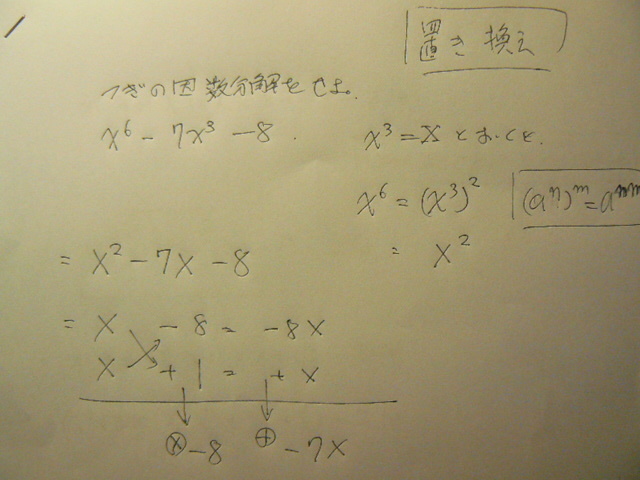 置き換え
つぎの因数分解をせよ。
x⁶ - 7x³ - 8. x³ = X とおくと.
x⁶ = (x³)² (aⁿ)ᵐ = aⁿᵐ
= X² - 7X - 8 = X²
= X - 8 = -8X
X + 1 = + X
⊗ -8 ⊕ -7X